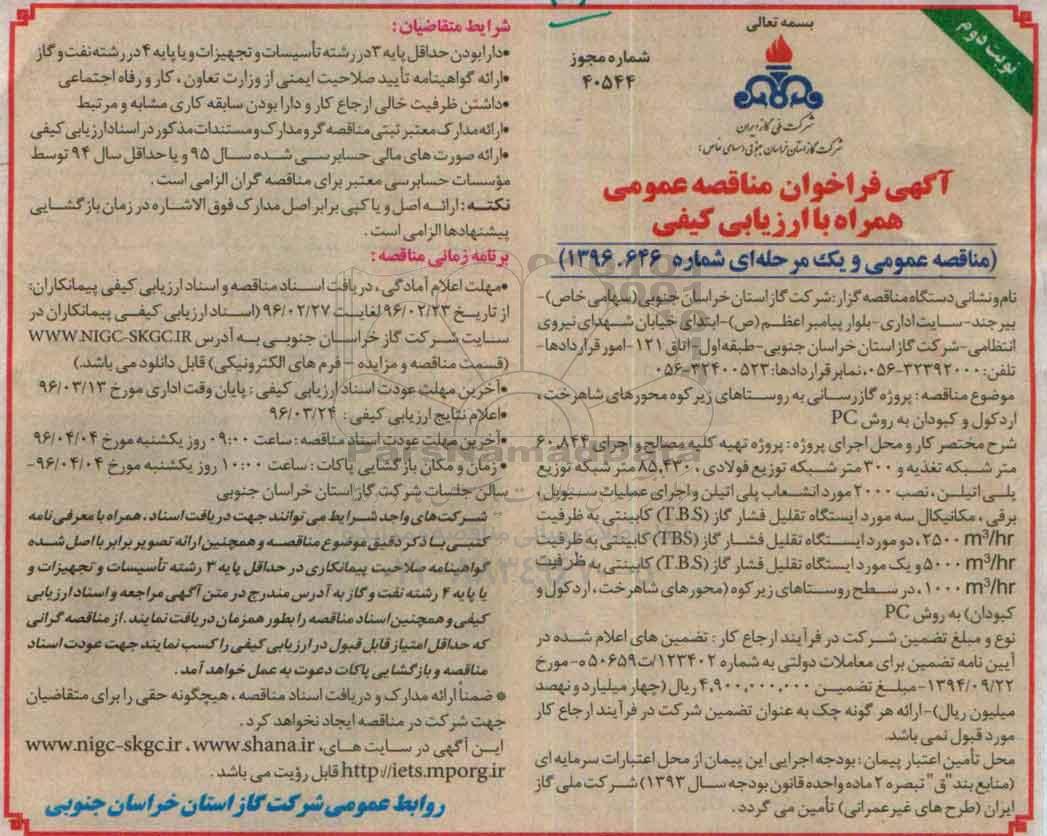 نوبت دوم
بسمه تعالی
شماره مجوز
۴۰۵۴۴
شرکت ملی گاز ایران
شرکت گاز استان خراسان جنوبی (سهامی خاص)
آگهی فراخوان مناقصه عمومی
همراه با ارزیابی کیفی
(مناقصه عمومی و یک مرحله‌ای شماره ۱۳۹۶.۶۴۶)
نام و نشانی دستگاه مناقصه گزار: شرکت گاز استان خراسان جنوبی (سهامی خاص)-
بیرجند-سایت اداری-بلوار پیامبر اعظم (ص)-ابتدای خیابان شهدای نیروی
انتظامی-شرکت گاز استان خراسان جنوبی-طبقه اول-اتاق ۱۲۱-امور قراردادها-
تلفن: ۳۲۳۹۲۰۰۰-۰۵۶، نمابر قراردادها: ۳۲۴۰۰۵۲۳-۰۵۶
موضوع مناقصه: پروژه گازرسانی به روستاهای زیر کوه محورهای شاهرخت،
اردکول و کبودان به روش PC
شرح مختصر کار و محل اجرای پروژه: پروژه تهیه کلیه مصالح و اجرای ۶۰,۸۴۴
متر شبکه تغذیه و ۳۰۰ متر شبکه توزیع فولادی، ۸۵,۴۳۰ متر شبکه توزیع
پلی اتیلن، نصب ۲۰۰۰ مورد انشعاب پلی اتیلن و اجرای عملیات سیویل،
برقی، مکانیکال سه مورد ایستگاه تقلیل فشار گاز (T.B.S) کابینتی به ظرفیت
۲۵۰۰ m³/hr، دو مورد ایستگاه تقلیل فشار گاز (TBS) کابینتی به ظرفیت
۵۰۰۰ m³/hr و یک مورد ایستگاه تقلیل فشار گاز (T.B.S) کابینتی به ظرفیت
۱۰۰۰ m³/hr، در سطح روستاهای زیر کوه (محورهای شاهرخت، اردکول و
کبودان) به روش PC
نوع و مبلغ تضمین شرکت در فرآیند ارجاع کار: تضمین های اعلام شده در
آیین نامه تضمین برای معاملات دولتی به شماره ۱۲۳۴۰۲/ت۵۰۶۵۹ه-مورخ
۱۳۹۴/۰۹/۲۲-مبلغ تضمین ۴,۹۰۰,۰۰۰,۰۰۰ ریال (چهار میلیارد و نهصد
میلیون ریال)-ارائه هر گونه چک به عنوان تضمین شرکت در فرآیند ارجاع کار
مورد قبول نمی باشد.
محل تأمین اعتبار پیمان: بودجه اجرایی این پیمان از محل اعتبارات سرمایه ای
(منابع بند "ق" تبصره ۲ ماده واحده قانون بودجه سال ۱۳۹۳) شرکت ملی گاز
ایران (طرح های غیرعمرانی) تأمین می گردد.
شرایط متقاضیان:
•دارا بودن حداقل پایه ۳ در رشته تأسیسات و تجهیزات و یا پایه ۴ در رشته نفت و گاز
•ارائه گواهینامه تأیید صلاحیت ایمنی از وزارت تعاون، کار و رفاه اجتماعی
•داشتن ظرفیت خالی ارجاع کار و دارا بودن سابقه کاری مشابه و مرتبط
•ارائه مدارک معتبر ثبتی مناقصه گر و مدارک و مستندات مذکور در اسناد ارزیابی کیفی
•ارائه صورت های مالی حسابرسی شده سال ۹۵ و یا حداقل سال ۹۴ توسط
مؤسسات حسابرسی معتبر برای مناقصه گران الزامی است.
نکته: ارائه اصل و یا کپی برابر اصل مدارک فوق الاشاره در زمان بازگشایی
پیشنهادها الزامی است.
برنامه زمانی مناقصه:
•مهلت اعلام آمادگی، دریافت اسناد مناقصه و اسناد ارزیابی کیفی پیمانکاران:
از تاریخ ۹۶/۰۲/۲۳ لغایت ۹۶/۰۲/۲۷ (اسناد ارزیابی کیفی پیمانکاران در
سایت شرکت گاز خراسان جنوبی به آدرس WWW.NIGC-SKGC.IR
(قسمت مناقصه و مزایده - فرم های الکترونیکی) قابل دانلود می باشد.)
•آخرین مهلت عودت اسناد ارزیابی کیفی: پایان وقت اداری مورخ ۹۶/۰۳/۱۳
•اعلام نتایج ارزیابی کیفی: ۹۶/۰۳/۲۴
•آخرین مهلت عودت اسناد مناقصه: ساعت ۰۹:۰۰ روز یکشنبه مورخ ۹۶/۰۴/۰۴
•زمان و مکان بازگشایی پاکات: ساعت ۱۰:۰۰ روز یکشنبه مورخ ۹۶/۰۴/۰۴-
سالن جلسات شرکت گاز استان خراسان جنوبی
شرکت های واجد شرایط می توانند جهت دریافت اسناد، همراه با معرفی نامه
کتبی با ذکر دقیق موضوع مناقصه و همچنین ارائه تصویر برابر با اصل شده
گواهینامه صلاحیت پیمانکاری در حداقل پایه ۳ رشته تأسیسات و تجهیزات و
یا پایه ۴ رشته نفت و گاز به آدرس مندرج در متن آگهی مراجعه و اسناد ارزیابی
کیفی و همچنین اسناد مناقصه را بطور همزمان دریافت نمایند. از مناقصه گرانی
که حداقل امتیاز قابل قبول در ارزیابی کیفی را کسب نمایند جهت عودت اسناد
مناقصه و بازگشایی پاکات دعوت به عمل خواهد آمد.
* ضمناً ارائه مدارک و دریافت اسناد مناقصه، هیچگونه حقی را برای متقاضیان
جهت شرکت در مناقصه ایجاد نخواهد کرد.
این آگهی در سایت های، www.nigc-skgc.ir ، www.shana.ir
http://iets.mporg.ir قابل رؤیت می باشد.
روابط عمومی شرکت گاز استان خراسان جنوبی
ParsNamadData